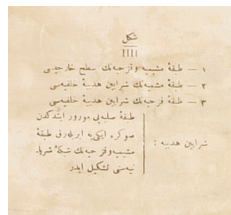 شكل
IIII
١ — طبقهٔ مشيميه و قزحيه‌نك سطح خارجيسى
٢ — طبقهٔ مشيميه‌نك شرايين هدبيهٔ خلفيه‌سى
٣ — طبقهٔ قزحيه‌نك شرايين هدبيهٔ خلفيه‌سى
شرايين هدبيه :
طبقهٔ صلبه‌يى مرور ايتدكدن
صوكره ايكى‌يه آيريله‌رق طبقهٔ
مشيميه و قزحيه‌نك شبكهٔ شريا
نيه‌سنى تشكيل ايدر